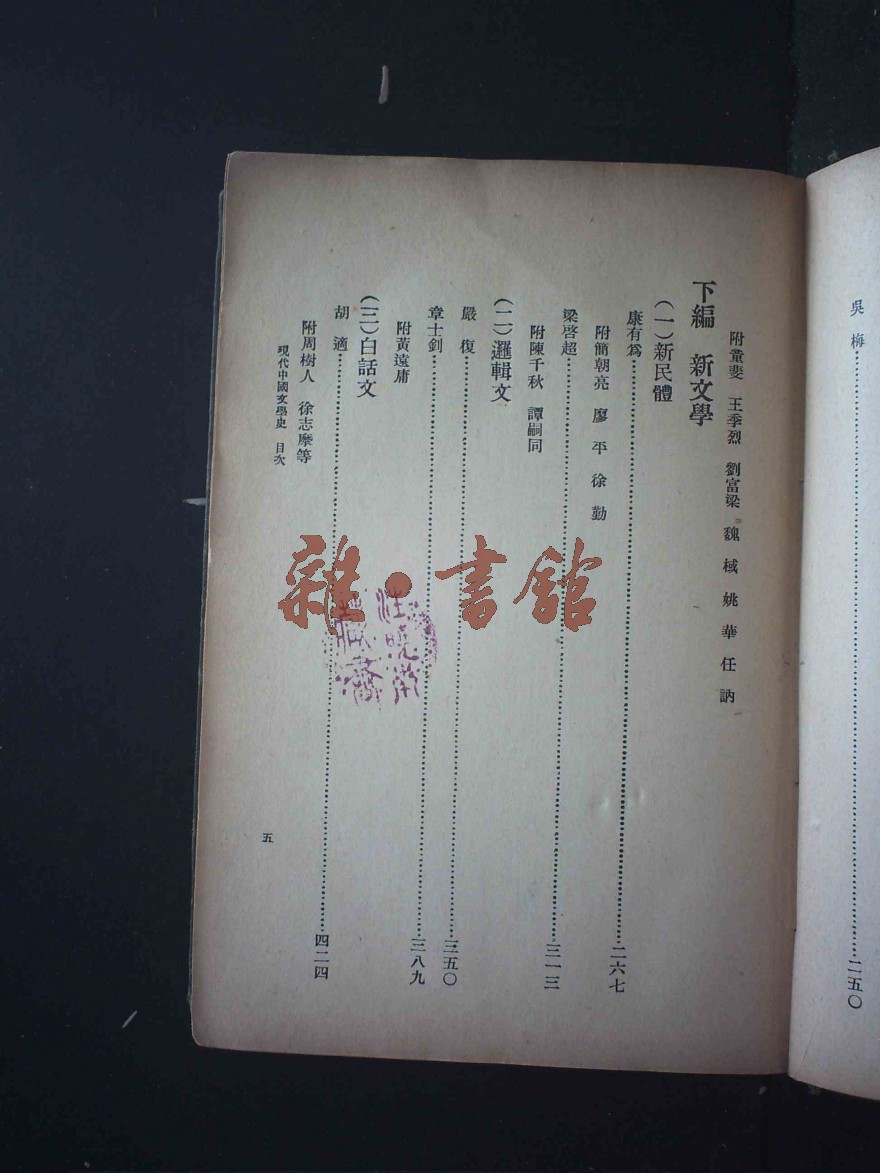 吳梅……………………………二五〇
附童斐　王季烈　劉富梁　魏棫　姚華　任訥
下編　新文學
（一）新民體
康有爲……………………………二六七
附簡朝亮　廖平　徐勤
梁啓超……………………………三一三
附陳千秋　譚嗣同
（二）邏輯文
嚴復……………………………三五〇
章士釗……………………………三八九
附黃遠庸
（三）白話文
胡適……………………………四二四
附周樹人　徐志摩等
現代中國文學史　目次
五
雜·書館